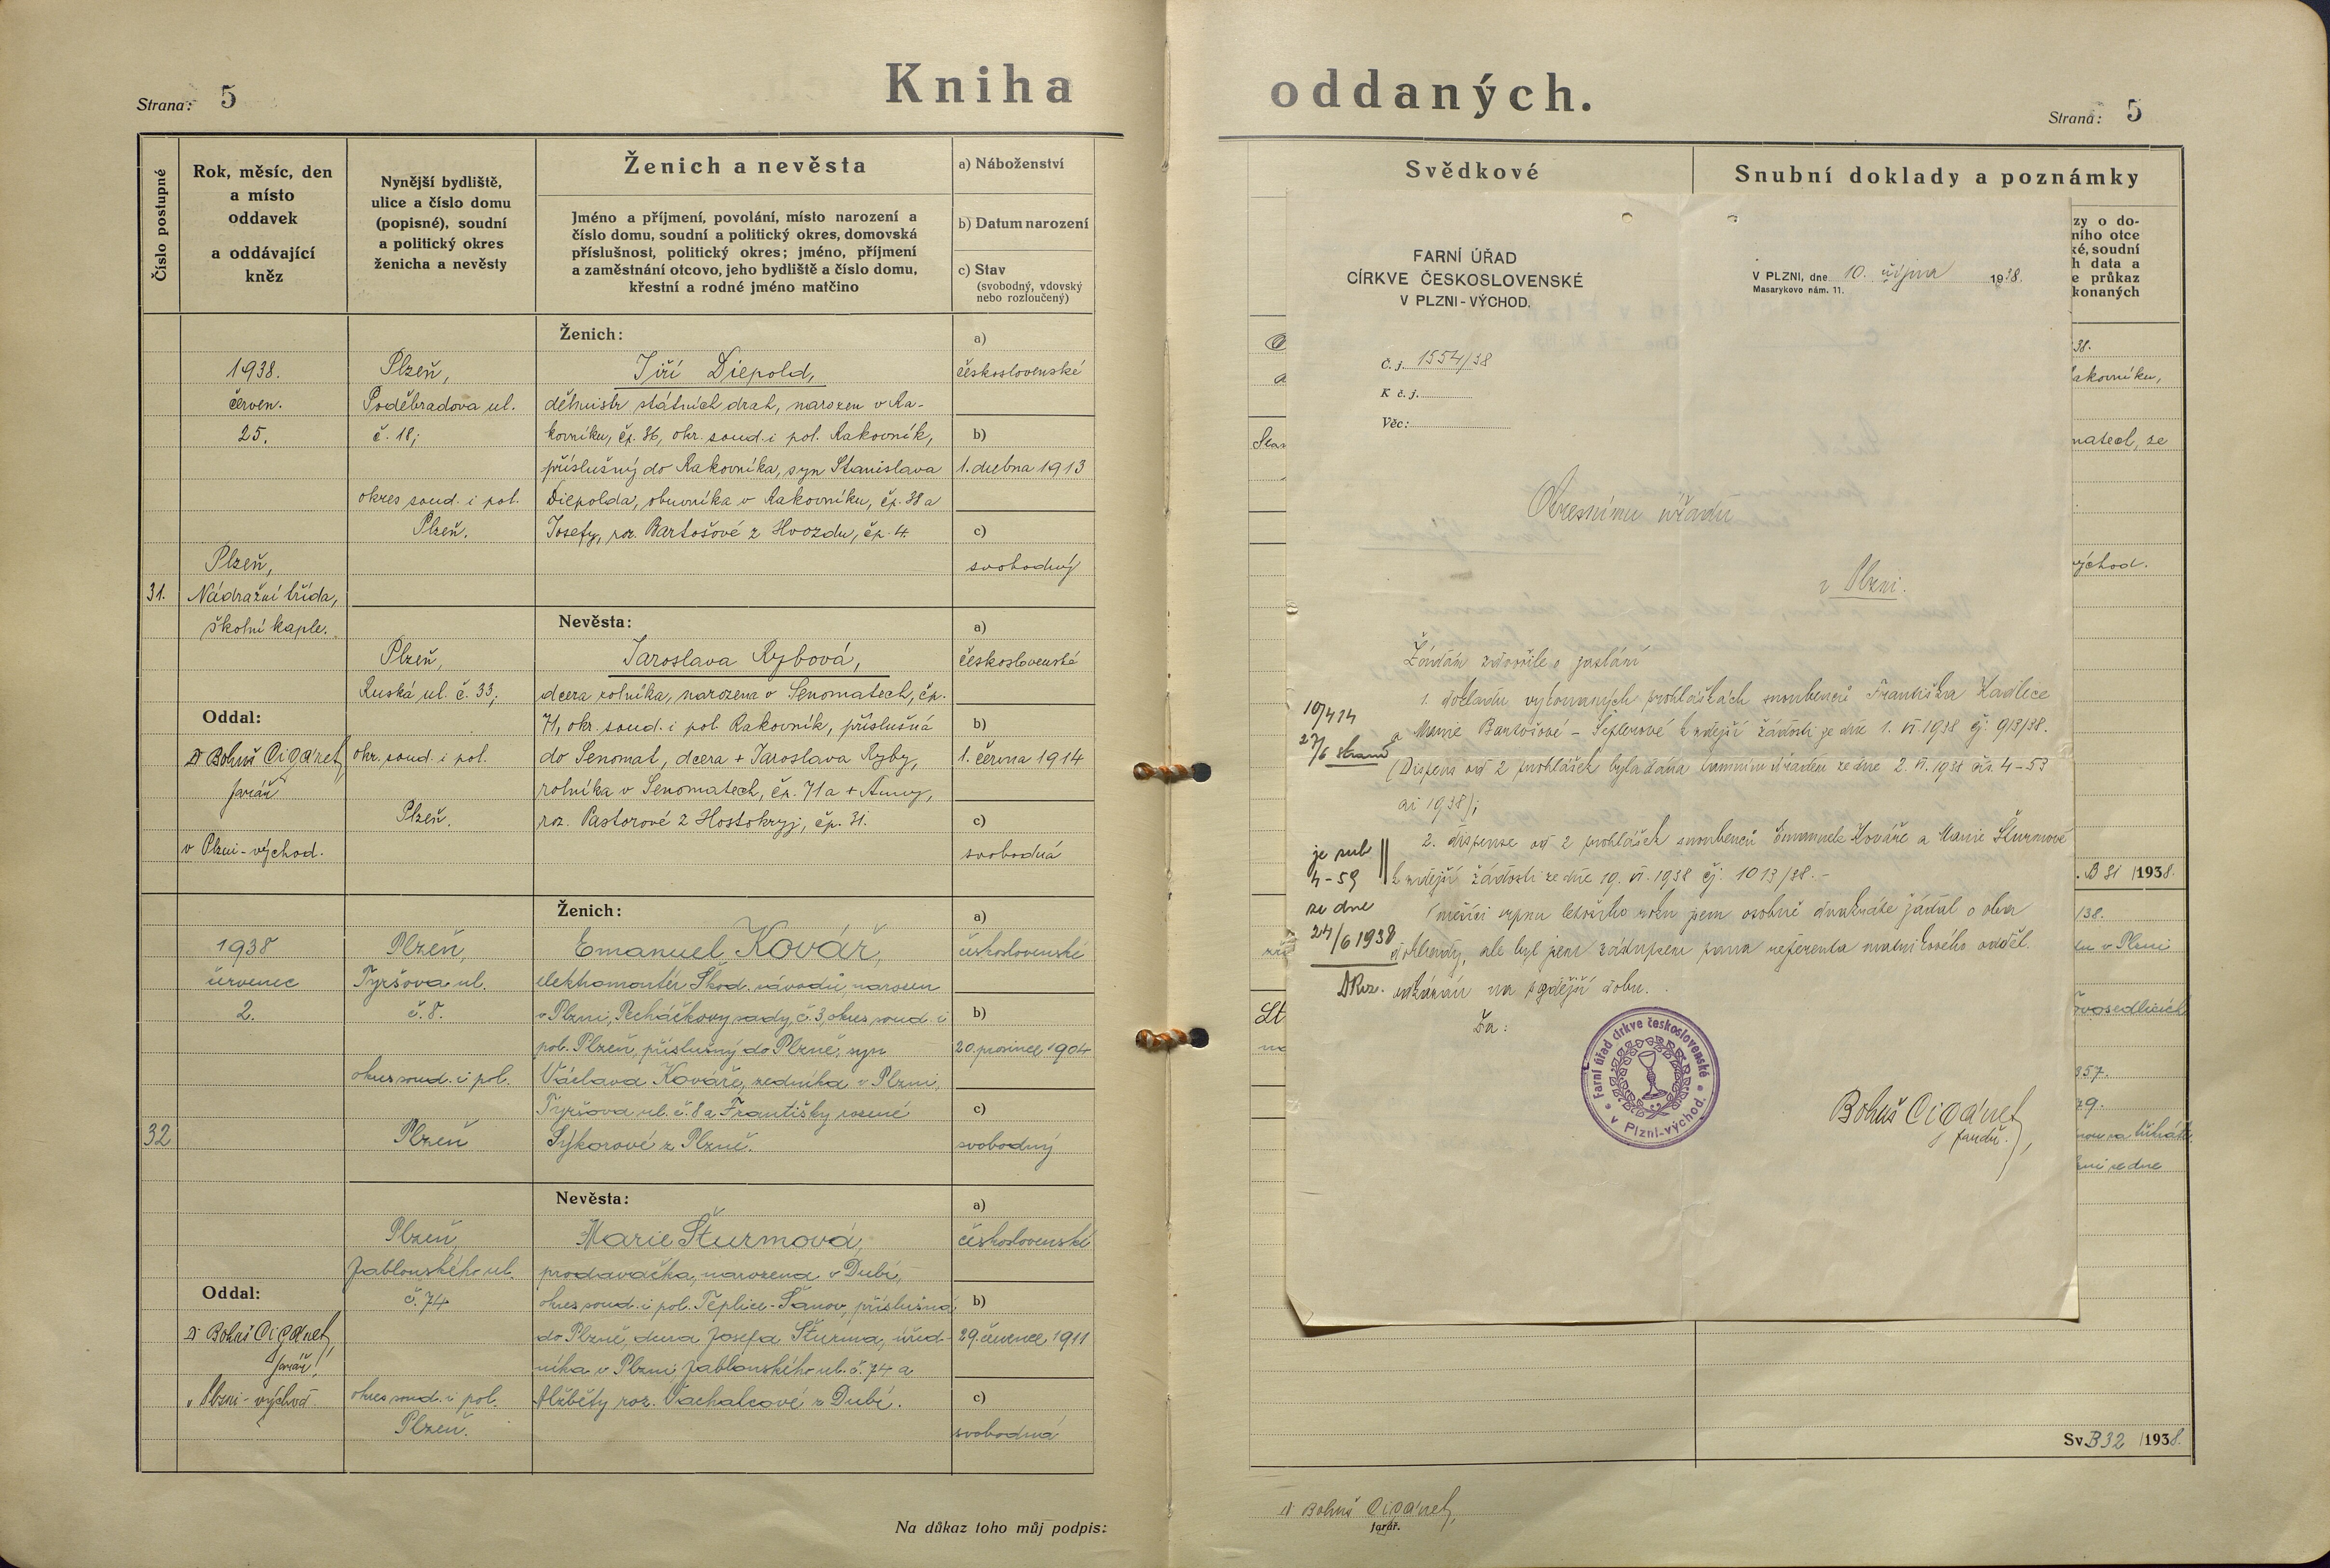 Kniha oddaných.
Strana: 5
Strana: 5
Číslo postupné
Rok, měsíc, den
a místo
oddavek
a oddávající
kněz
Nynější bydliště,
ulice a číslo domu
(popisné), soudní
a politický okres
ženicha a nevěsty
Ženich a nevěsta
Jméno a příjmení, povolání, místo narození a
číslo domu, soudní a politický okres, domovská
příslušnost, politický okres; jméno, příjmení
a zaměstnání otcovo, jeho bydliště a číslo domu,
křestní a rodné jméno matčino
a) Náboženství
b) Datum narození
c) Stav
(svobodný, vdovský
nebo rozloučený)
31.
1938.
červen.
25.
Plzeň,
Nádražní třída,
školní kaple.
Oddal:
Dr Bohuš Cigánek,
farář
v Plzni-východ.
Plzeň,
Poděbradova ul.
č. 18;
okres soud. i pol.
Plzeň.
Ženich:
Jiří Diepold,
dělmistr státních drah, narozen v Ra-
kovníku, čp. 36, okr. soud. i pol. Rakovník,
příslušný do Rakovníka, syn Stanislava
Diepolda, obuvníka v Rakovníku, čp. 38 a
Josefy, roz. Bartošové z Hvozdu, čp. 4.
a)
československé
b)
1. dubna 1913
c)
svobodný
Plzeň,
Ruská ul. č. 33;
okr. soud. i pol.
Plzeň.
Nevěsta:
Jaroslava Rybová,
dcera rolníka, narozena v Senomatech, čp.
71, okr. soud. i pol. Rakovník, příslušná
do Senomat, dcera + Jaroslava Ryby,
rolníka v Senomatech, čp. 71 a + Anny,
roz. Pastorové z Hostokryj, čp. 31.
a)
československé
b)
1. června 1914
c)
svobodná
32
1938
červenec
2.
Oddal:
Dr Bohuš Cigánek,
farář
v Plzni-východ
Plzeň,
Tyršova ul.
č. 8.
okres soud. i pol.
Plzeň
Ženich:
Emanuel Kovář,
elektromontér Škod. závodů, narozen
v Plzni, Pecháčkovy sady, č. 3, okres soud. i
pol. Plzeň, příslušný do Plzně, syn
Václava Kováře, zedníka v Plzni,
Tyršova ul. č. 8 a Františky rozené
Sýkorové z Plzně.
a)
československé
b)
20. prosince 1904
c)
svobodný
Plzeň,
Jablonského ul.
č. 74
okres soud. i pol.
Plzeň.
Nevěsta:
Marie Šturmová,
prodavačka, narozena v Dubí,
okres soud. i pol. Teplice-Šanov, příslušná
do Plzně, dcera Josefa Šturma, úřed-
níka v Plzni, Jablonského ul. č. 74 a
Alžběty roz. Vachalcové z Dubí.
a)
československé
b)
29. července 1911
c)
svobodná
Na důkaz toho můj podpis:
Svědkové
Snubní doklady a poznámky
FARNÍ ÚŘAD
CÍRKVE ČESKOSLOVENSKÉ
V PLZNI-VÝCHOD.
V PLZNI, dne 10. října 1938.
Masarykovo nám. 11.
Č. j. 1554/38
K č. j.
Věc:
Okresnímu úřadu
v Plzni.
Žádám zdvořile o zaslání
1. dokladu vykonaných prohláškách snoubenců Františka Kadlece
a Marie Bartošové - Šeflerové k zdejší žádosti ze dne 1. VI. 1938 čj. 913/38.
(Dispens od 2 prohlášek byla dána tamním úřadem ze dne 2. VI. 1938 čís. 4-53
ai 1938);
2. dispense od 2 prohlášek snoubenců Emanuele Kováře a Marie Šturmové
k zdejší žádosti ze dne 19. VI. 1938 čj. 1013/38.-
V měsíci srpnu letošního roku jsem osobně dvakráte žádal o oba
doklady, ale byl jsem zástupcem pana referenta matričního odděl.
odkázán na pozdější dobu.
Za:
je sub
4-59
ze dne
24/6 1938
Farní úřad církve československé v Plzni-východ.
Bohuš Cigánek,
farář.
zy o do-
ního otce
ké, soudní
h data a
e průkaz
konaných
38.
akovníku,
natech, ze
východ.
B 31 /1938.
/38.
v Plzni
357.
79.
ze dne
Sv. B 32 /1938.
Dr Bohuš Cigánek,
farář.